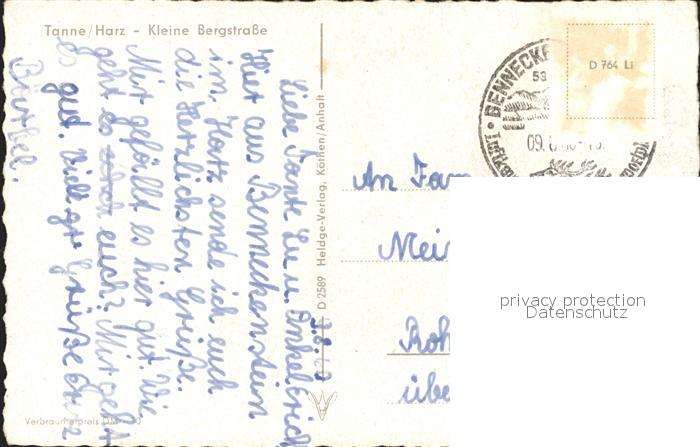 Tanne/Harz - Kleine Bergstraße
Liebe Tante Lu u. Onkel Erich
Hier aus Benneckenstein
im Harz sende ich euch
die Herzlichsten Grüße.
Mir gefällt es hier gut. Wie
geht es euch? Mir geht
es gut. Viele Grüße
Bärbel.
Verbraucherpreis DM
D 2589 Heldge-Verlag, Köthen/Anhalt
D 764 Li
BENNECKE
09.
An Fam
Mei
Roh
übe
privacy protection
Datenschutz